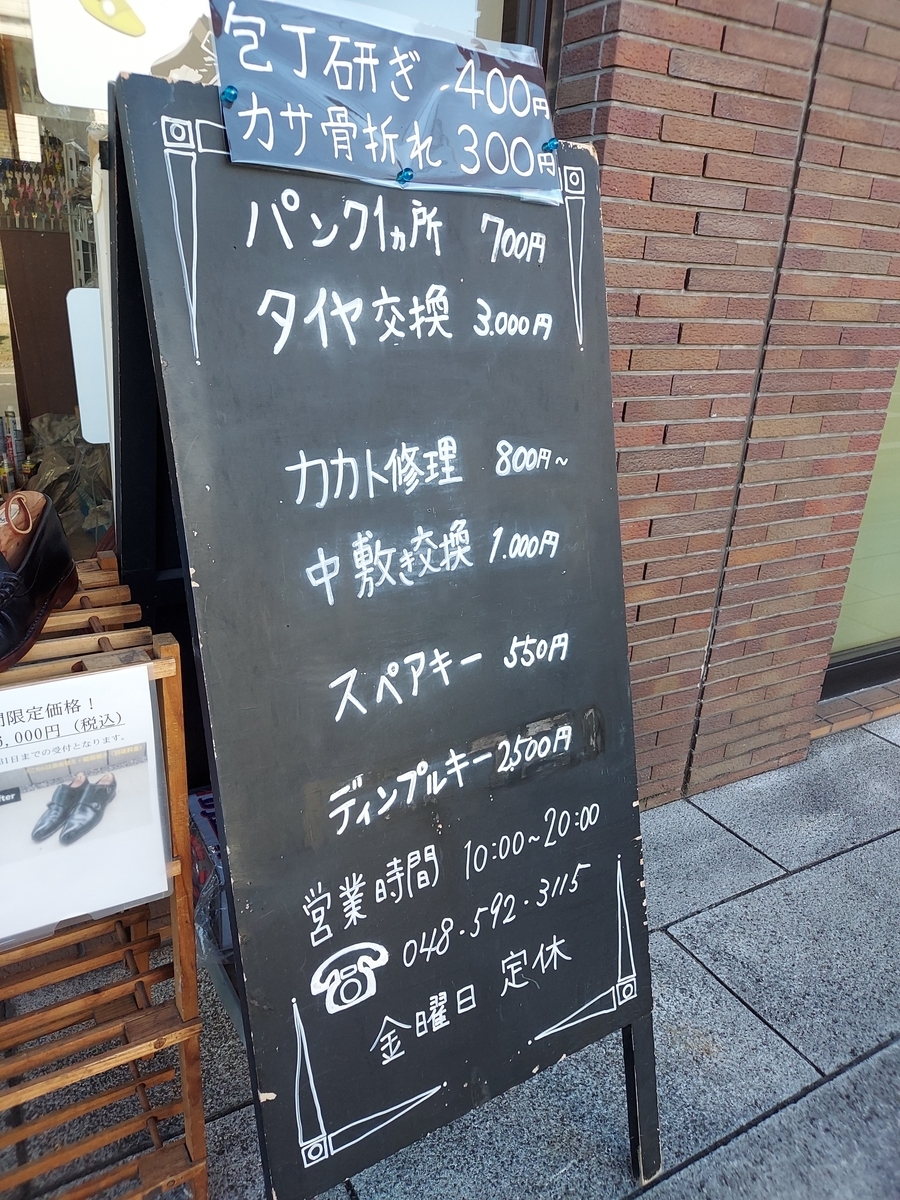 包丁研ぎ 400円
カサ骨折れ 300円
パンク1ヵ所 700円
タイヤ交換 3.000円
カカト修理 800円~
中敷き交換 1.000円
スペアキー 550円
ディンプルキー 2,500円
営業時間 10:00~20:00
048-592-3115
金曜日 定休
間限定価格!
,000円 (税込)
31日までの受付となります。